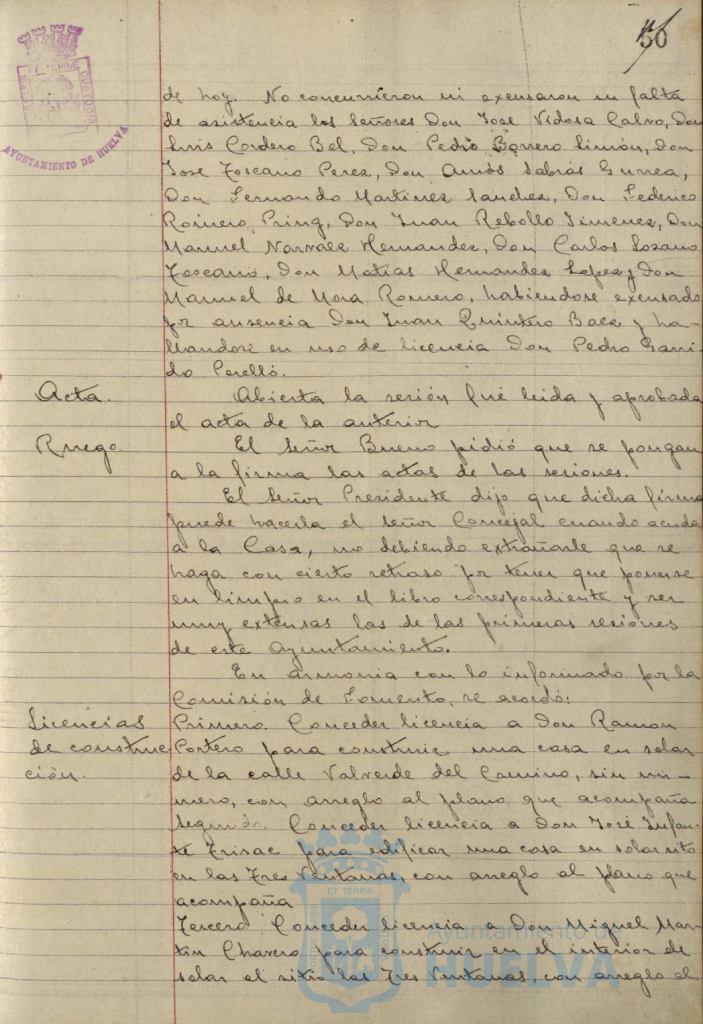 50
AYUNTAMIENTO DE HUELVA
de hoy. No concurrieron ni excusaron su falta
de asistencia los Señores Don Jose Vidosa Calvo, Don
Luis Cordero Bel, Don Pedro Borrero Limón, Don
Jose Toscano Perez, Don Amós Sabrás Gurrea,
Don Fernando Martinez Sanchez, Don Federico
Romero Pring, Don Juan Rebollo Jimenez, Don
Manuel Narvaez Hernandez, Don Carlos Lozano
Toscano, Don Matias Hernandez Lopez y Don
Manuel de Mora Romero, habiendose excusado
por ausencia Don Juan Quintero Baez y ha-
llandose en uso de licencia Don Pedro Garri-
do Perelló.
Acta. Abierta la sesión fué leida y aprobada
el acta de la anterior
Ruego El Señor Bueno pidió que se pongan
a la firma las actas de las sesiones.
El Señor Presidente dijo que dicha firma
puede hacerla el Señor Concejal cuando acuda
a la Casa, no debiendo extrañarle que se
haga con cierto retraso por tener que ponerse
en limpio en el libro correspondiente y ser
muy extensas las de las primeras sesiones
de este Ayuntamiento.
En armonia con lo informado por la
Comisión de Fomento, se acordó:
Licencias Primero. Conceder licencia a Don Ramon
de construc Portero para construir una casa en solar
ción. de la calle Valverde del Camino, sin nú-
mero, con arreglo al plano que acompaña
Segundo. Conceder licencia a Don José Infan-
te Trisac para edificar una casa en solar sito
en las Tres Ventanas, con arreglo al plano que
acompaña
Tercero Conceder licencia a Don Miguel Mar-
tin Chavero para construir en el interior de
solar al sitio las Tres Ventanas, con arreglo al
Ayuntamiento de
HUELVA